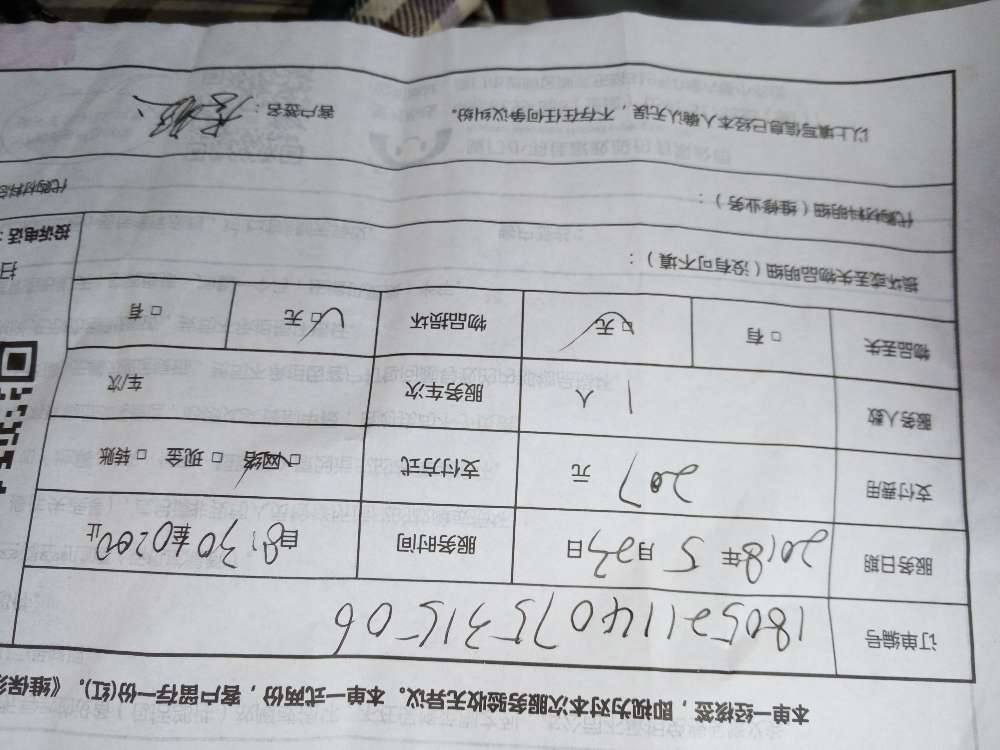 本单一经核签，即视为对本次服务验收无异议。本单一式两份，客户留存一份(红)。《维保须
订单编号 1805211407531506
服务日期 2018年5月23日 服务时间 自8:30至 止
支付费用 207 元 支付方式 □网络 □现金 □转账
服务人数 1 人 服务车次 车/次
物品丢失 □有 □无 物品损坏 □无 □有
损坏或丢失物品明细（没有可不填）：
扫
投诉电话：
代购材料明细（维修业务）：
代购材料总
以上填写信息已经本人确认无误，不存在任何争议纠纷。 客户签名：